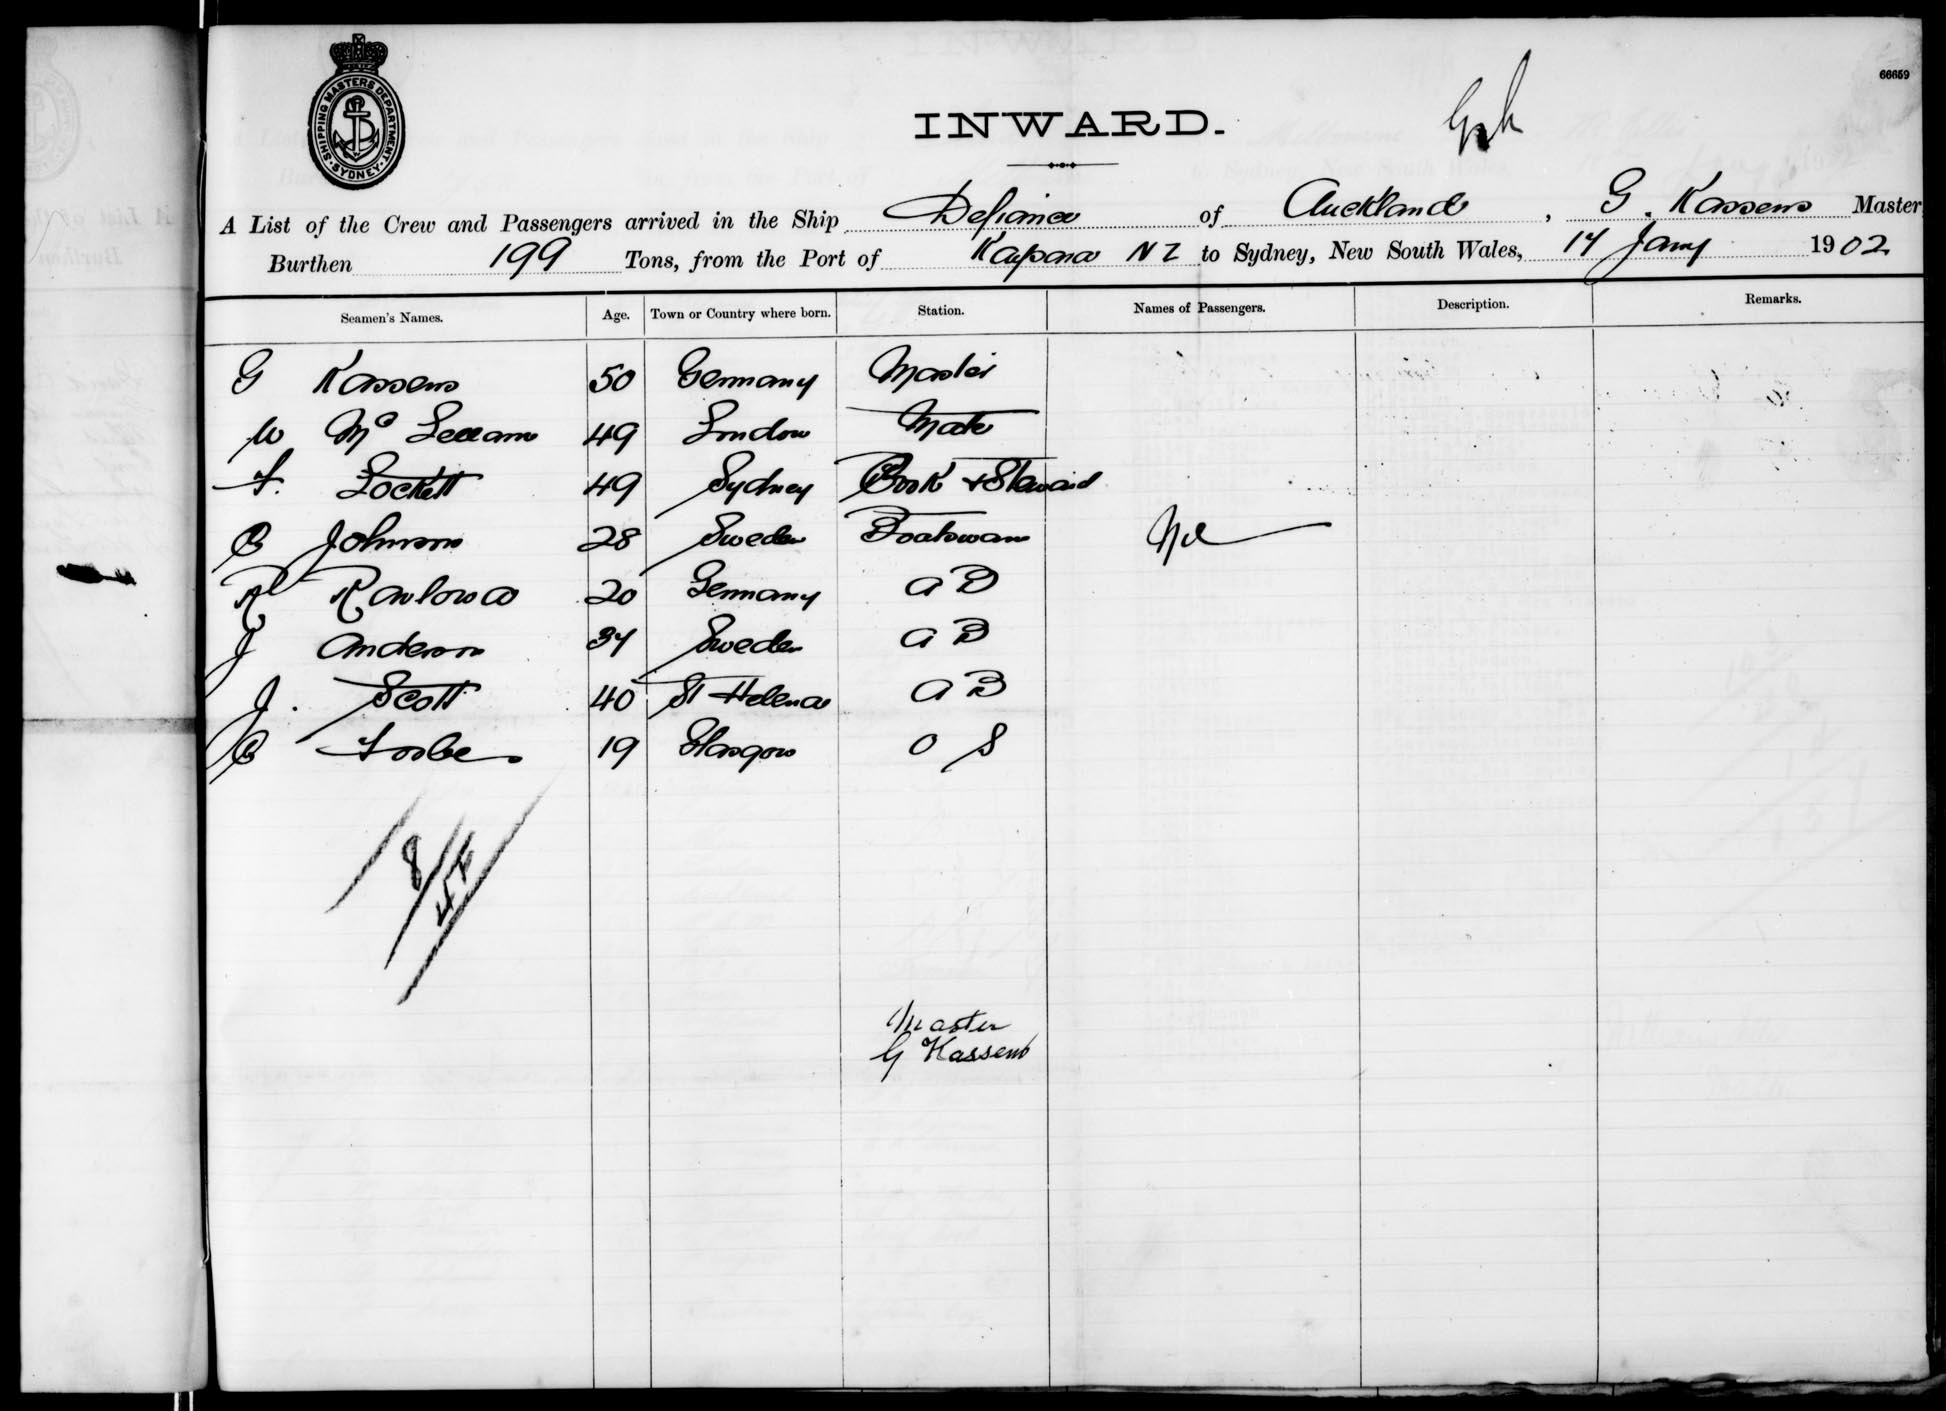 66659
SHIPPING MASTERS DEPARTMENT. SYDNEY
INWARD.
A List of the Crew and Passengers arrived in the Ship Defiance of Auckland, G. Kassens Master
Burthen 199 Tons, from the Port of Kaipara NZ to Sydney, New South Wales, 14 Jany 1902
Seamen's Names. Age. Town or Country where born. Station. Names of Passengers. Description. Remarks.
G Kassens 50 Germany Master
W Mc 49 London Mate
F. Lockett 49 Sydney Cook + Steward
C Johnson 28 Sweden Boatswain Nil
R 20 Germany A B
J Anderson 34 Sweden A B
J. Scott 40 St Helena A B
C Forbes 19 Glasgow O S
8
Master
G Kassens